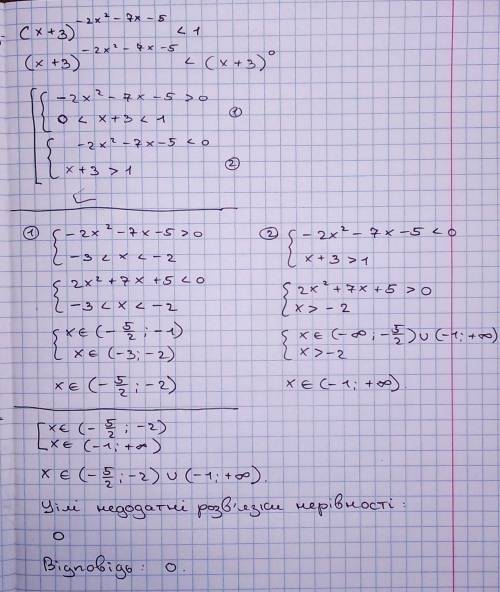 (x+3)^{-2x²-7x-5} < 1
(x+3)^{-2x²-7x-5} < (x+3)^0
[ { -2x²-7x-5 > 0
0 < x+3 < 1 ①
{ -2x²-7x-5 < 0
x+3 > 1 ②
① { -2x²-7x-5 > 0
-3 < x < -2
{ 2x²+7x+5 < 0
-3 < x < -2
{ x ∈ (-5/2; -1)
x ∈ (-3; -2)
x ∈ (-5/2; -2)
② { -2x²-7x-5 < 0
x+3 > 1
{ 2x²+7x+5 > 0
x > -2
{ x ∈ (-∞; -5/2) ∪ (-1; +∞)
x > -2
x ∈ (-1; +∞).
[ x ∈ (-5/2; -2)
x ∈ (-1; +∞)
x ∈ (-5/2; -2) ∪ (-1; +∞).
Цілі недодатні розв'язки нерівності:
0
Відповідь: 0.